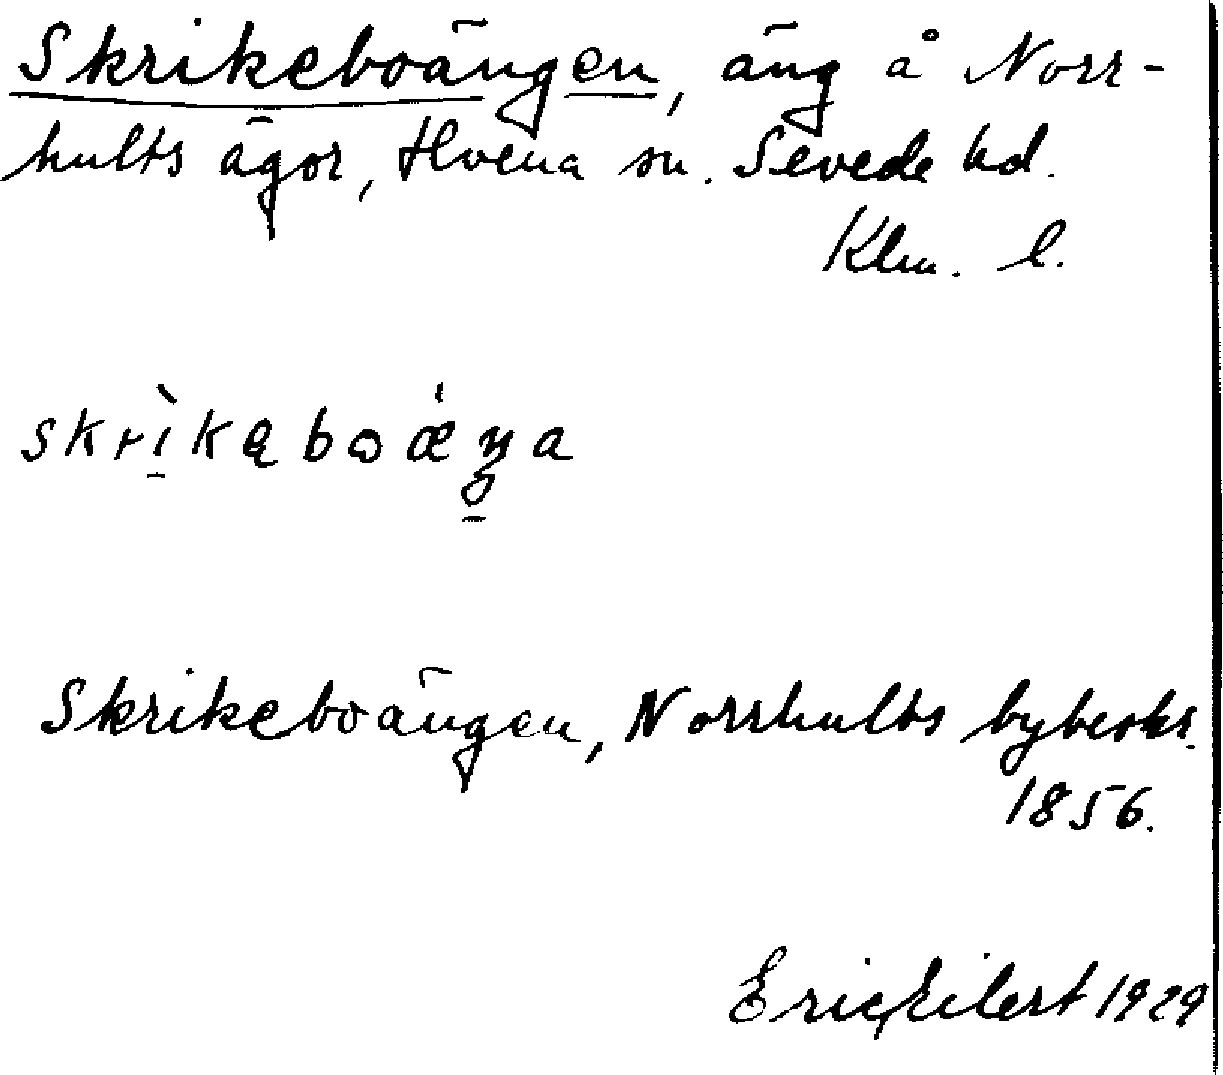 Skrikeboängen, äng å Norr-
hults ägor, Hvena sn. Sevede hd.
Klm. l.
skrìkąboǽŋa
Skrikeboängen, Norrhults bybeskr.
1856.
Eric Eilert 1929